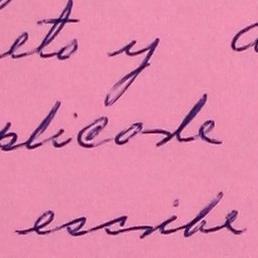 eto y a
plicarle
escribe